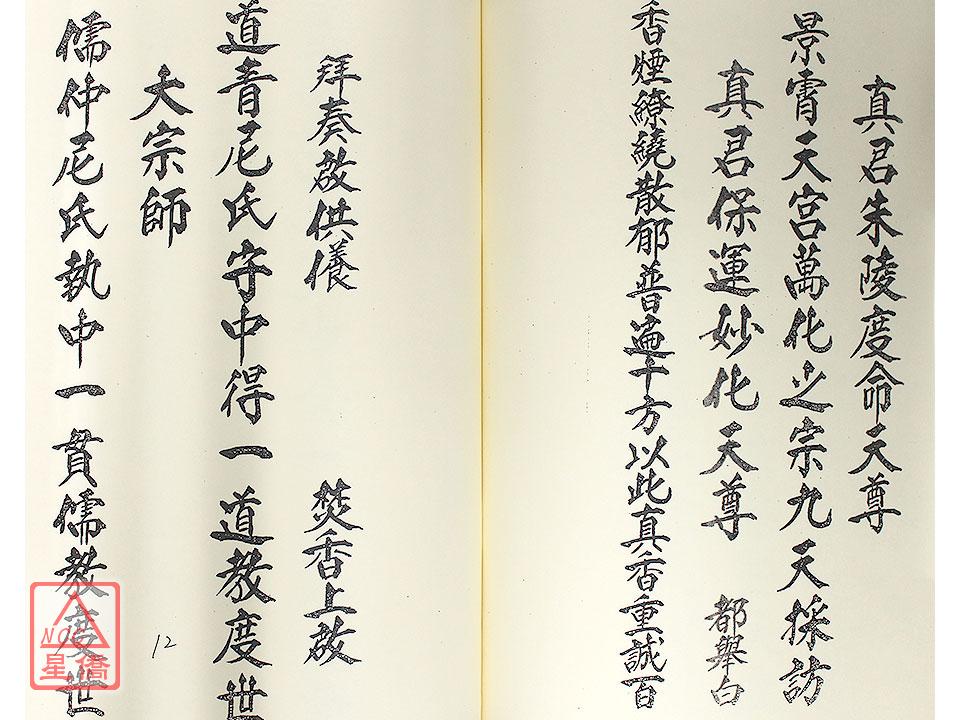 真君朱陵度命天尊
景霄天宮萬化之宗九天採訪
真君保運妙化天尊 都舉白
香煙繚繞散郁普遍十方以此真香重誠百
拜奏啟供儀 焚香上啟
道青尼氏守中得一道教度世
大宗師
儒仲尼氏執中一貫儒教度世
12
NCC
星僑